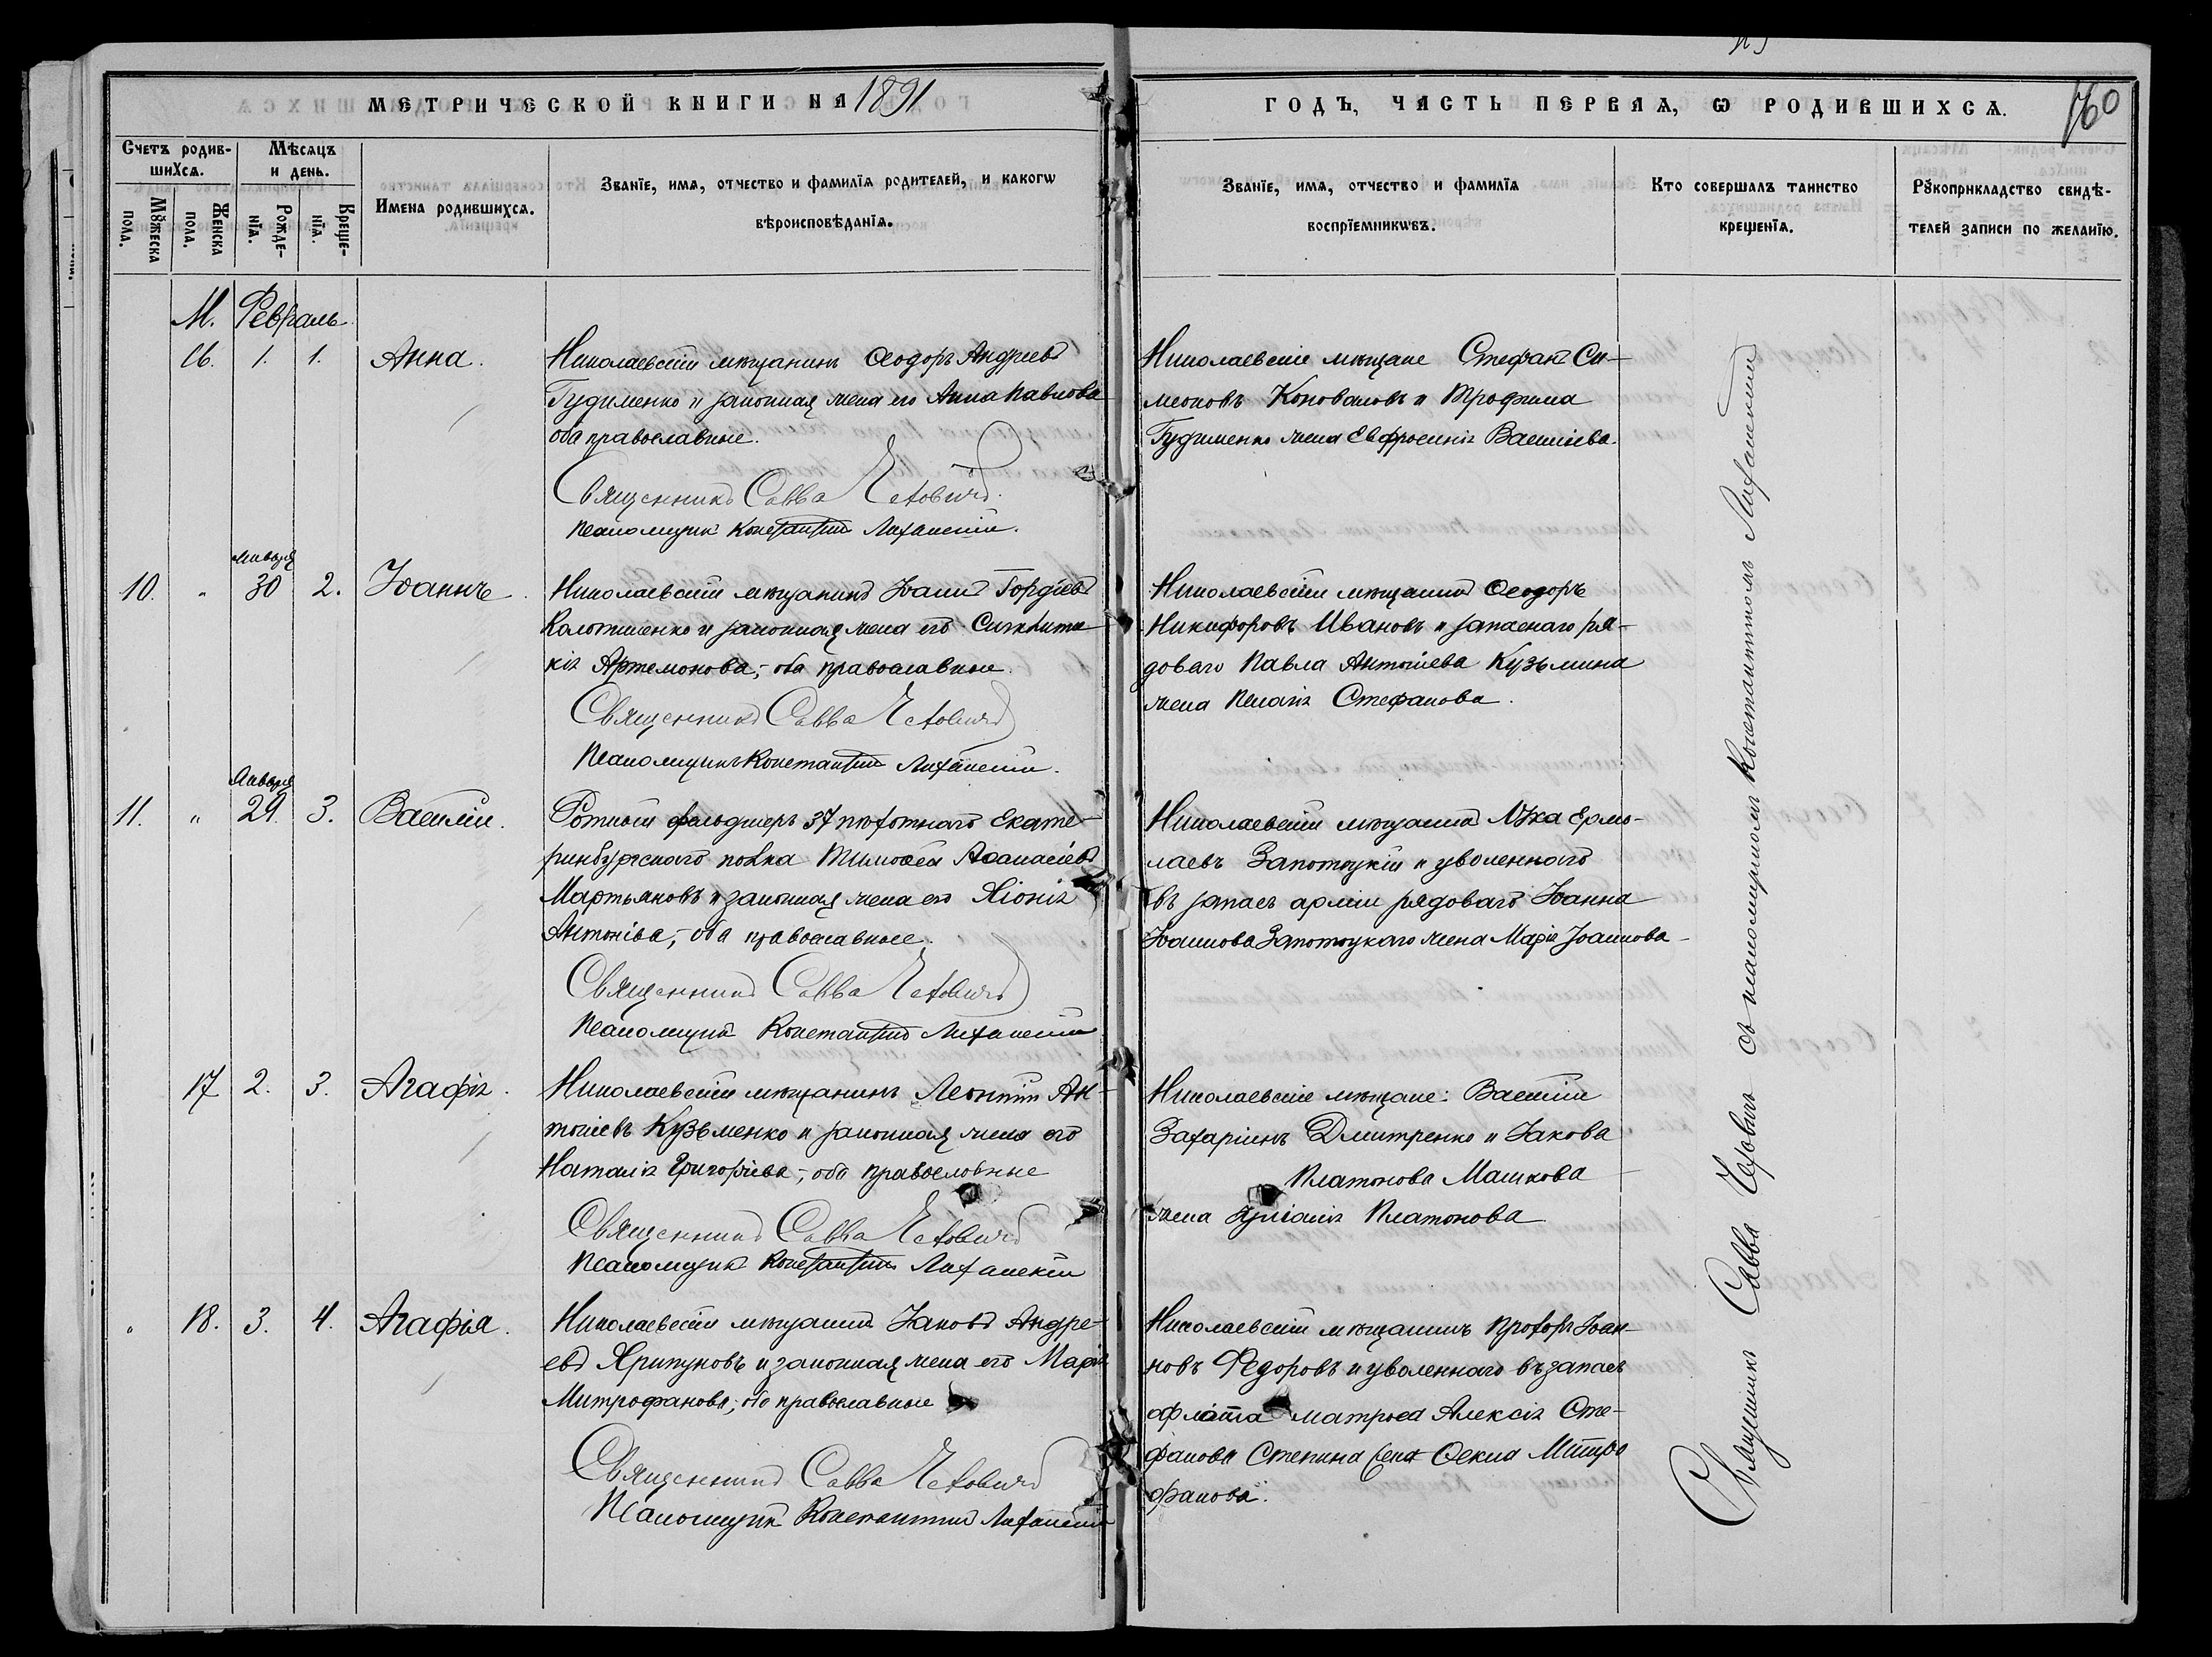 МЕТРИЧЕСКОЙ КНИГИ НА 1891
ГОДЪ, ЧАСТЬ ПЕРВАЯ, Ѡ РОДИВШИХСѦ.
160
Счетъ родив-
шихсѧ.
Мѣсѧцъ
и день.
Мꙋжеска
пола.
Женска
пола.
Рожде-
нїѧ.
Креще-
нїѧ.
Имена родившихсѧ.
Званїе, имѧ, отчество и фамилїѧ родителей, и какогѡ
вѣроисповѣданїѧ.
Званїе, имѧ, отчество и фамилїѧ
воспрїемникѡвъ.
Кто совершалъ таинство
крещенїѧ.
Рꙋкоприкладство свидѣ-
телей записи по желанїю.
М. Февраль
16. 1. 1. Анна.
Николаевскій мѣщанинъ Ѳеодоръ Андреевъ
Гудименко и законная жена его Анна Павлова
оба православные.
Священникъ Савва Чеховичъ.
Псаломщикъ Константинъ Лихацкій.
Николаевскіе мѣщане Стефанъ Си-
меоновъ Коноваловъ и Трофима
Гудименко жена Евфросинія Васильева.
10. " Января 30 2. Іоаннъ.
Николаевскій мѣщанинъ Іоаннъ Гордіевъ
и законная жена его Синклити-
кія Артемонова; оба православные.
Священникъ Савва Чеховичъ
Псаломщикъ Константинъ Лихацкій.
Николаевскій мѣщанинъ Ѳеодоръ
Никифоровъ Ивановъ и запаснаго ря-
доваго Павла Антоніева Кузьмина
жена Пелагія Стефанова.
11. " Января 29. 3. Василій.
Ротный фельдшеръ 37 пѣхотнаго Екате-
ринбургскаго полка Тимоѳей Аѳанасіевъ
Мартьяновъ и законная жена его Хіонія
Антоніева; оба православные.
Священникъ Савва Чеховичъ
Псаломщикъ Константинъ Лихацкій
Николаевскій мѣщанинъ Лука Ермо-
лаевъ Запотоцкій и уволеннаго
въ запасъ арміи рядоваго Іоанна
Іоаннова Запотоцкаго жена Марія Іоаннова
17 2. 3. Агафія.
Николаевскій мѣщанинъ Леонтій Ан-
тоніевъ Кузьменко и законная жена его
Наталія Григоріева; оба православные
Священникъ Савва Чеховичъ
Псаломщикъ Константинъ Лихацкій
Николаевскіе мѣщане: Василій
Захаріинъ Дмитренко и Іакова
Платонова Машкова
жена Платонова
" 18. 3. 4. Агафія.
Николаевскій мѣщанинъ Іаковъ Андре-
евъ Хрипуновъ и законная жена его Марія
Митрофанова; оба православные
Священникъ Савва Чеховичъ
Псаломщикъ Константинъ Лихацкій
Николаевскій мѣщанинъ Прохоръ Іоан-
новъ Федоровъ и уволеннаго въ запасъ
флота матроса Алексія Сте-
фанова Степина жена Ѳекла Митро
фанова.
Священникъ Савва Чеховичъ съ псаломщикомъ Константиномъ Лихацкимъ